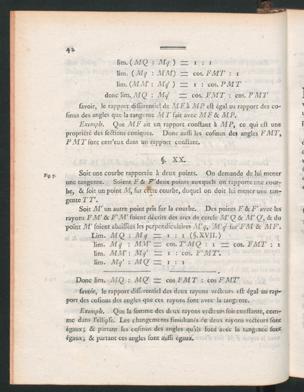 42
lim. (MQ : Mq) = 1 : 1
lim. (Mq : MM) = cos. FMT : 1
lim. (MM : Mq') = 1 : cos. PMT
donc lim. MQ : Mq' = cos. FMT : cos. PMT
savoir, le rapport différentiel de MF à MP est égal au rapport des co-
sinus des angles que la tangente MT fait avec MF & MP.
Exemple. Que MF ait un rapport constant à MP, ce qui est une
propriété des sections coniques. Donc aussi les cosinus des angles FMT,
PMT sont entr'eux dans un rapport constant.
§. XX.
Fig. 7.
Soit une courbe rapportée à deux points. On demande de lui mener
une tangente. Soient F & F' deux points auxquels on rapporte une cour-
be, & soit un point M, sur cette courbe, duquel on doit lui mener une tan-
gente TT'.
Soit M' un autre point pris sur la courbe. Des points F & F' avec les
rayons FM & F'M' soient décrits des arcs de cercle M'Q & M'Q', & du
point M' soient abaissées les perpendiculaires M'q, M'q' sur FM & MF'.
Lim. MQ : Mq = 1 : 1 (§. XVII.)
lim. Mq : MM' = cos. T'MQ : 1 = cos. FMT : 1
lim. MM' : Mq' = 1 : cos. F'MT'.
lim. Mq' : MQ' = 1 : 1
Donc lim. MQ : MQ' = cos FMT : cos F'MT'
savoir, le rapport différentiel des deux rayons vecteurs est égal au rap-
port des cosinus des angles que ces rayons font avec la tangente.
Exemple. Que la somme des deux rayons vecteurs soit constante, com-
me dans l'ellipse. Les changemens simultanés de deux rayons vecteurs sont
égaux; & partant les cosinus des angles qu'ils font avec la tangente sont
égaux; & partant ces angles sont aussi égaux.